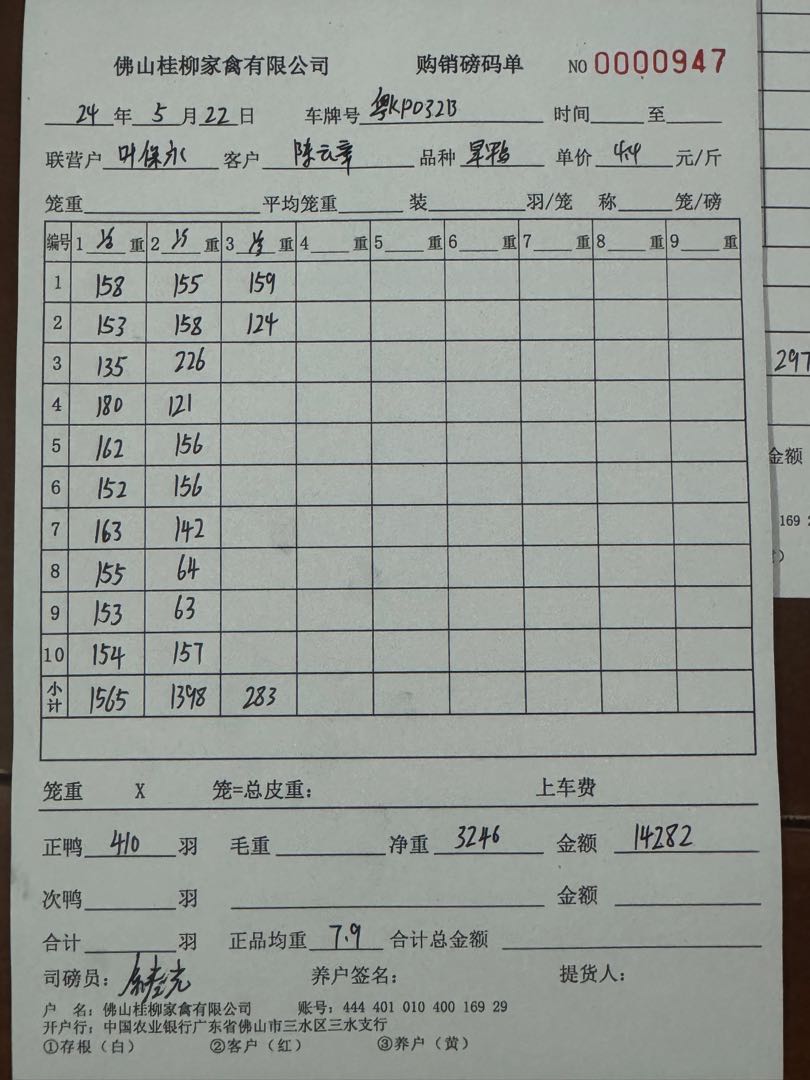 佛山桂柳家禽有限公司 购销磅码单 NO 0000947
24 年 5 月 22 日 车牌号 粤KP032B 时间 至
联营户 叶保永 客户 陈云章 品种 旱鸭 单价 4.4 元/斤
笼重 平均笼重 装 羽/笼 称 笼/磅
编号 1 重 2 重 3 重 4 重 5 重 6 重 7 重 8 重 9 重
1 158 155 159
2 153 158 124
3 135 226
4 180 121
5 162 156
6 152 156
7 163 142
8 155 64
9 153 63
10 154 157
小计 1565 1398 283
笼重 X 笼=总皮重： 上车费
正鸭 410 羽 毛重 净重 3246 金额 14282
次鸭 羽 金额
合计 羽 正品均重 7.9 合计总金额
司磅员： 养户签名： 提货人：
户 名：佛山桂柳家禽有限公司 账号：444 401 010 400 169 29
开户行：中国农业银行广东省佛山市三水区三水支行
①存根（白） ②客户（红） ③养户（黄）
297
金额
169